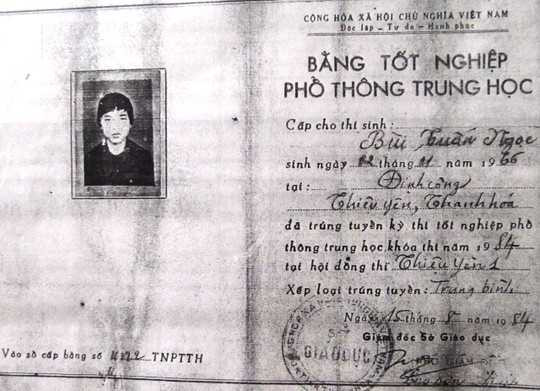 CỘNG HÒA XÃ HỘI CHỦ NGHĨA VIỆT NAM
Độc lập - Tự do - Hạnh phúc
BẰNG TỐT NGHIỆP
PHỔ THÔNG TRUNG HỌC
Cấp cho thí sinh: Bùi Tuấn Ngọc
sinh ngày 02 tháng 01 năm 1966
tại: Định công
Thiệu Yên, Thanh hóa
đã trúng tuyển kỳ thi tốt nghiệp phổ
thông trung học, khóa thi năm 1984
tại hội đồng thi Thiệu Yên 1
Xếp loại trúng tuyển: Trung bình
Ngày 15 tháng 8 năm 1984
Giám đốc Sở Giáo dục
GIÁO DỤC
Vào sổ cấp bằng số TNPTTH